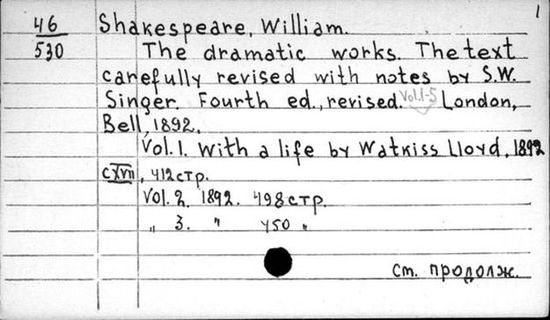 1
46 Shakespeare, William.
530 The dramatic works. The text
carefully revised with notes by S.W.
Singer. Fourth ed., revised. Vol.1-5 London,
Bell, 1892.
Vol. 1. With a life by Watkiss Lloyd, 1892
CXVII, 412 стр.
Vol. 2. 1892. 498 стр.
„ 3. " 450 „
См. продолж.